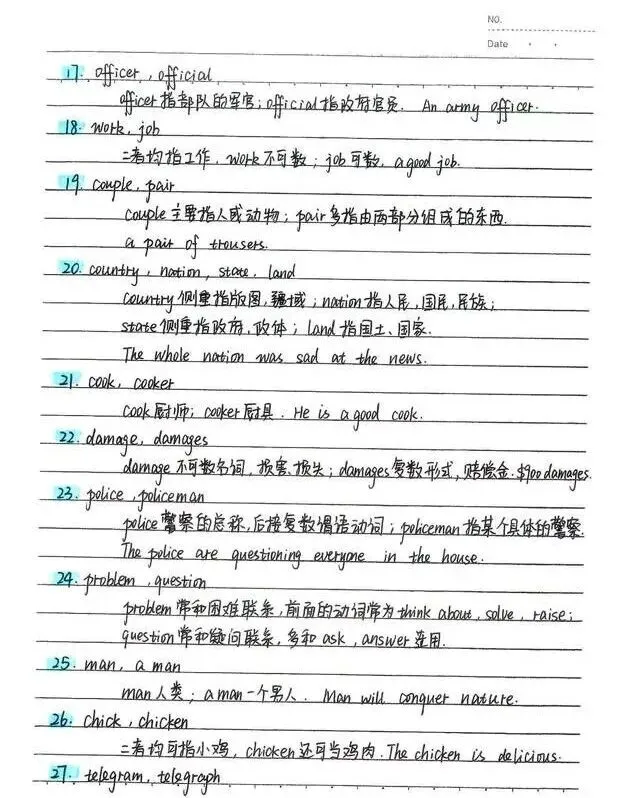 NO.
Date
17. officer, official
officer指部队的军官; official指政府官员. An army officer.
18. work, job
二者均指工作, work不可数; job可数, a good job.
19. couple, pair
couple主要指人或动物; pair多指由两部分组成的东西.
a pair of trousers.
20. country, nation, state, land
country侧重指版图,疆域; nation指人民,国民,民族;
state侧重指政府,政体; land指国土、国家.
The whole nation was sad at the news.
21. cook, cooker
cook厨师; cooker厨具. He is a good cook.
22. damage, damages
damage不可数名词, 损害、损失; damages复数形式, 赔偿金. $900 damages.
23. police, policeman
police警察的总称,后接复数谓语动词; policeman指某个具体的警察.
The police are questioning everyone in the house.
24. problem, question
problem常和困难联系, 前面的动词常为think about, solve, raise;
question常和疑问联系, 多和ask, answer连用.
25. man, a man
man人类; a man一个男人. Man will conquer nature.
26. chick, chicken
二者均可指小鸡, chicken还可当鸡肉. The chicken is delicious.
27. telegram, telegraph